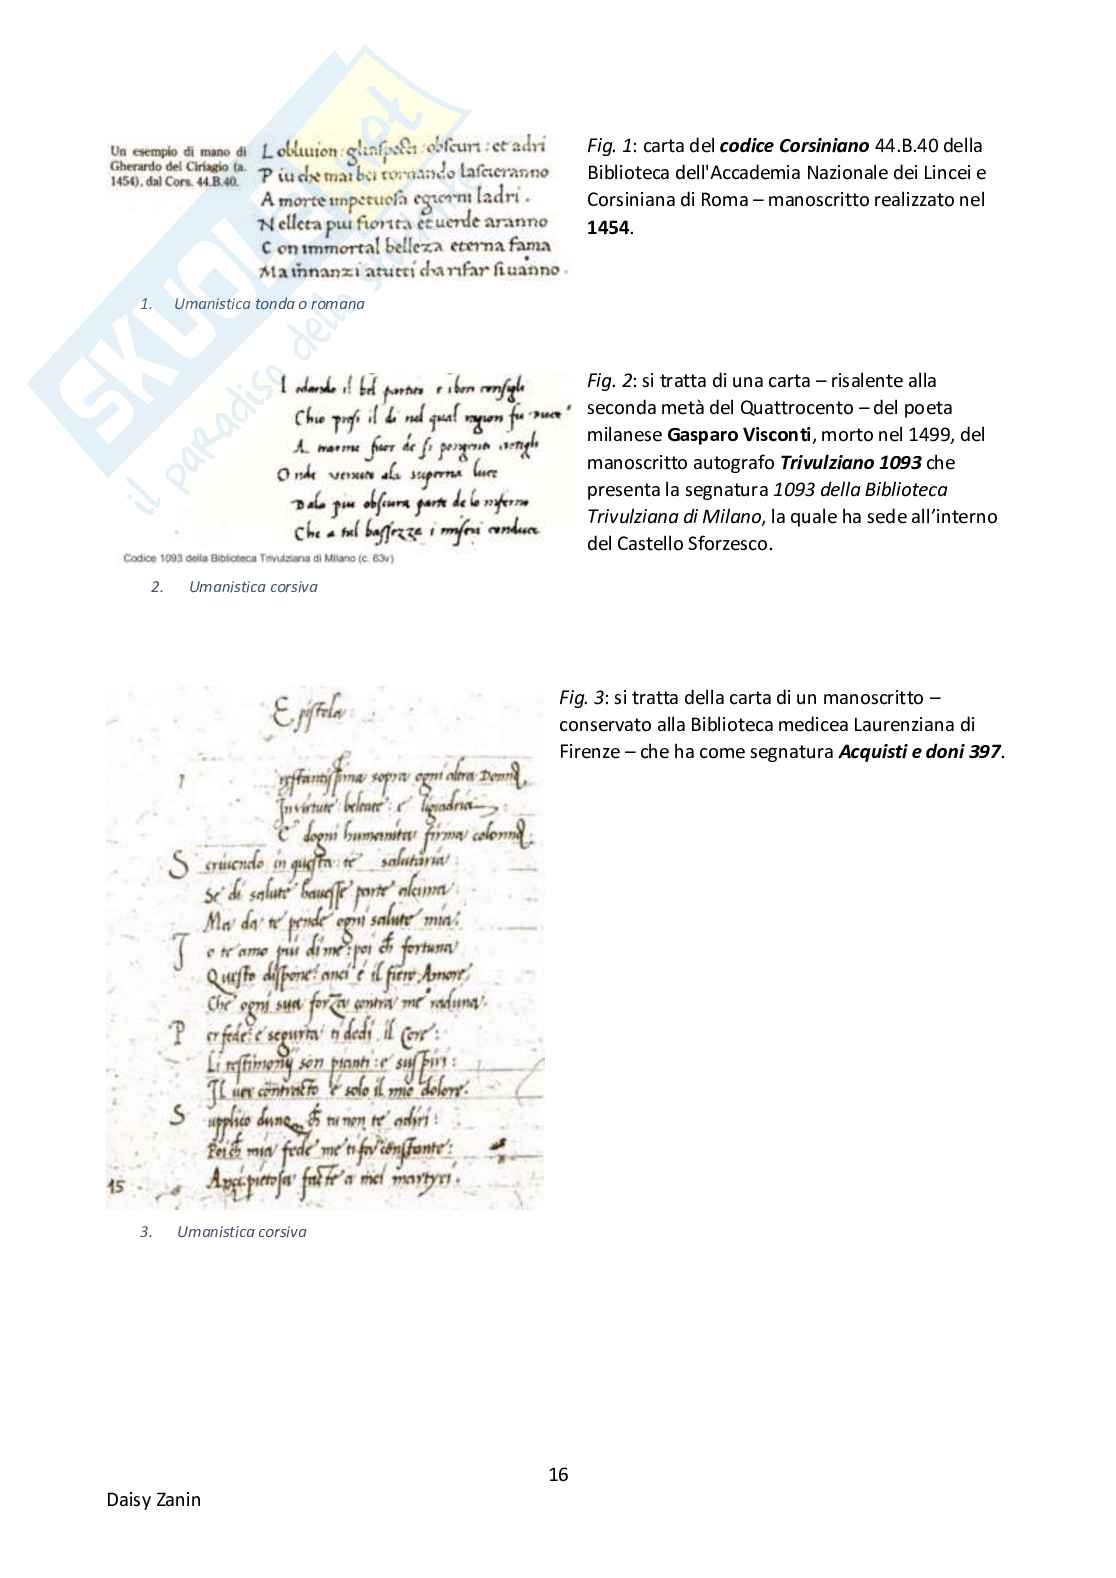 Un esempio di mano di
Gherardo del Ciriagio (a.
1454), dal Cors. 44.B.40.
L obliuion : gliaspecti obscuri : et adri
P iu che mai bei tornando lasceranno
A morte impetuosa egiorni ladri .
N elleta piu fiorita et uerde aranno
C on immortal belleza eterna fama
Ma innanzi atutti charifar siuanno .
1. Umanistica tonda o romana
Fig. 1: carta del codice Corsiniano 44.B.40 della
Biblioteca dell'Accademia Nazionale dei Lincei e
Corsiniana di Roma – manoscritto realizzato nel
1454.
il bel e
Chio presi il di nel qual
A fuor de si
O nde ala superna luce
Dala piu obscura parte de lo inferno
Che a tal bassezza i miseri conduce
Codice 1093 della Biblioteca Trivulziana di Milano (c. 63v)
2. Umanistica corsiva
Fig. 2: si tratta di una carta – risalente alla
seconda metà del Quattrocento – del poeta
milanese Gasparo Visconti, morto nel 1499, del
manoscritto autografo Trivulziano 1093 che
presenta la segnatura 1093 della Biblioteca
Trivulziana di Milano, la quale ha sede all’interno
del Castello Sforzesco.
Epistola
sopra ogni altra Donna
In virtute beleate : e ligiadria
E dogni humanita firma colonna :
S criuendo in questa : te salutaria :
Se di salute hauesse parte alcuna
Ma da te pende ogni salute mia :
I o te amo piu di me : poi ch fortuna
Questo dispone : anci e il fiero Amore
Che ogni sua forza contra me raduna .
P er fede : e segurta ti dedi il Core :
Li testimonij son pianti : e suspiri :
Il uer contratto e solo il mio dolore .
S upplico dunq ch tu non te adiri :
Poi ch mia fede me ti fa constante :
pietosa a mei martyri .
15
3. Umanistica corsiva
Fig. 3: si tratta della carta di un manoscritto –
conservato alla Biblioteca medicea Laurenziana di
Firenze – che ha come segnatura Acquisti e doni 397.
SKUOLA.net
il paradiso dello studente
16
Daisy Zanin